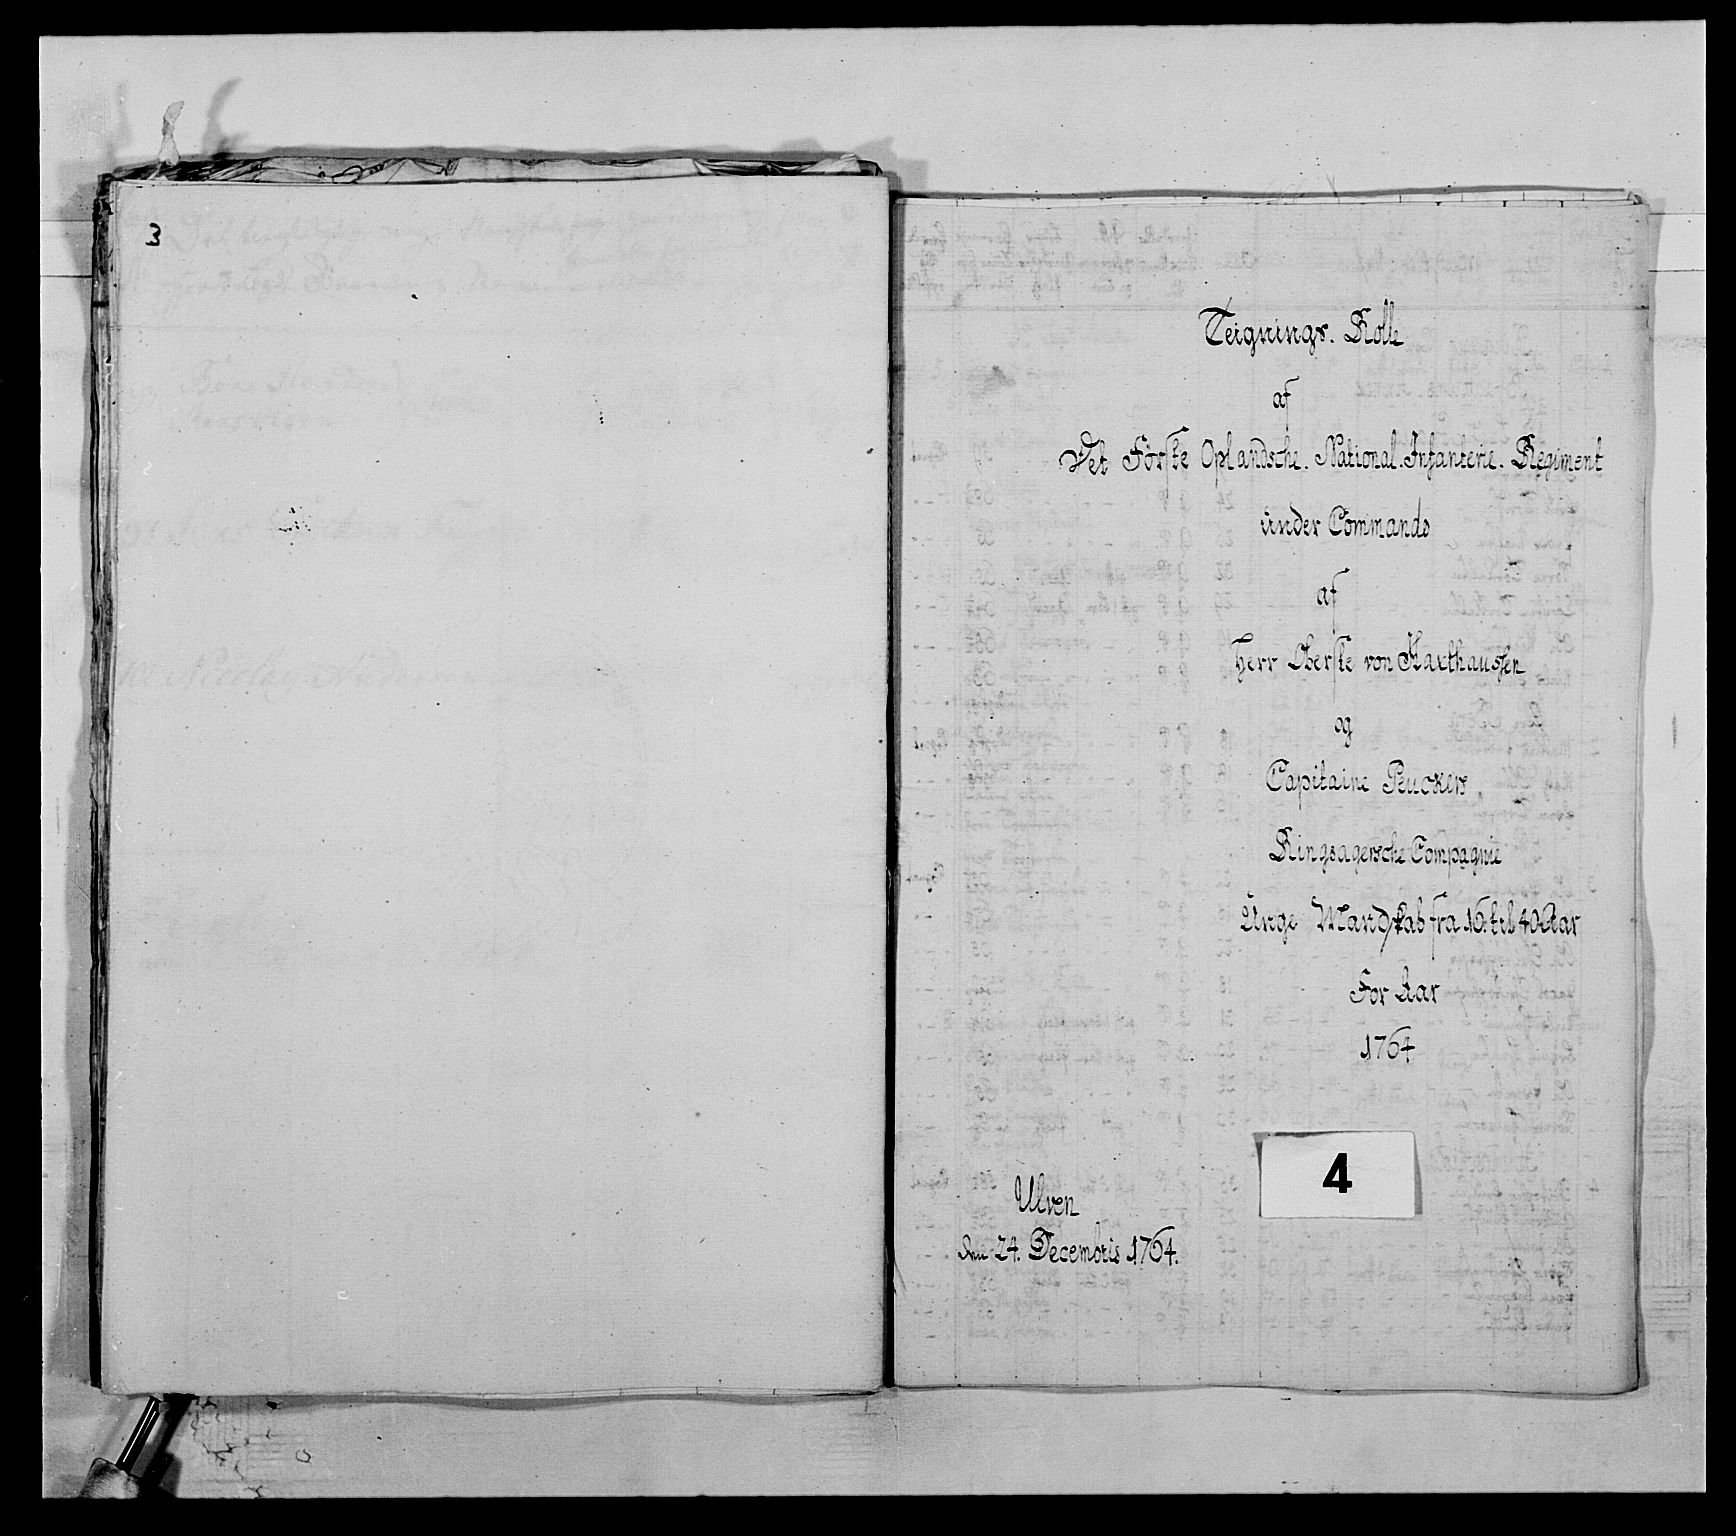 3
Teignings. Rolle
af
Det Förste Oplandsche. National. Infanterie. Regiment
ünder Commando
af
Herr Oberste von Haxthausen
og
Capitaine Peuckers
Ringsagersche Compagnie
Unge Mandskab fra 16. til 40 Aar
For Aar
1764
4
Ulven
den 24. Decembris 1764.